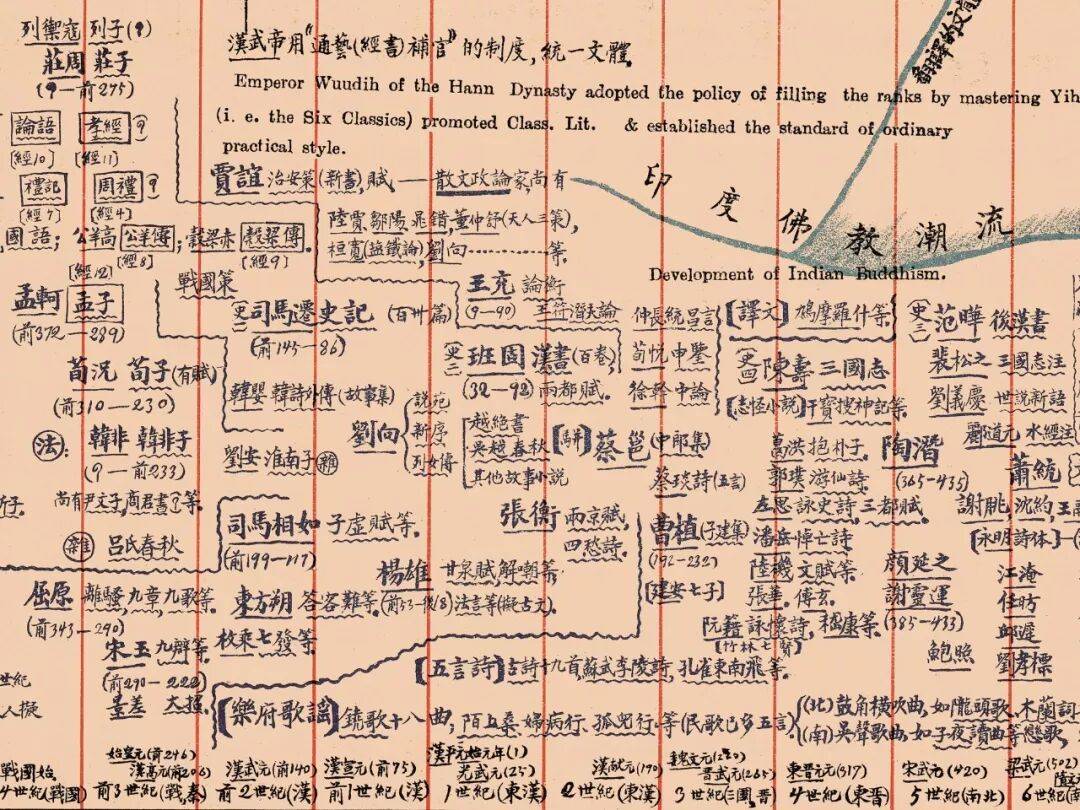 列禦寇 列子(?)
莊周 莊子
(?—前275)
論語 孝經 ?
[經10] [經11]
禮記 周禮 ?
[經7] [經4]
國語; 公羊高 公羊傳; 穀梁赤 穀梁傳.
[經8] [經9]
[經12] 戰國策
孟軻 孟子
(前372—289)
荀況 荀子(有賦)
(前310—230)
法: 韓非 韓非子
(?—前233)
尚有尹文子,商君書?等.
雜 呂氏春秋
屈原 離騷,九章,九歌等.
(前343—290)
宋玉 九辯等.
(前290—222)
景差 大招.
世紀
人擬
漢武帝用"通藝(經書)補官"的制度,統一文體.
Emperor Wuudih of the Hann Dynasty adopted the policy of filling the ranks by mastering Yih
(i. e. the Six Classics) promoted Class. Lit. & established the standard of ordinary
practical style.
翻譯的文
賈誼 治安策(新書),賦,——散文政論家,尚有
陸賈,鄒陽,晁錯,董仲舒(天人三策),
桓寬(鹽鐵論),劉向…………等.
印度佛教潮流
Development of Indian Buddhism.
史一 司馬遷 史記 (百卅篇)
(前145—86)
韓嬰 韓詩外傳(故事集)
劉安 淮南子 雜
劉向
說苑
新序
列女傳
司馬相如 子虛賦等.
(前199—117)
揚雄 甘泉賦,解嘲等,
(前53—後18)法言等(擬古文).
東方朔 答客難等.
枚乘 七發等.
王充 論衡
(?—90) 王符 潛夫論
史二 班固 漢書(百卷),
(32—92) 兩都賦.
越絕書
吳越春秋
其他故事小說
張衡 兩京賦,
四愁詩.
仲長統 昌言
荀悅 申鑒
徐幹 中論
[駢] 蔡邕(中郎集)
蔡琰詩(五言)
曹植(子建集)
(192—232)
[建安七子]
[譯文] 鳩摩羅什等.
史四 陳壽 三國志
[志怪小說]干寶 搜神記等.
葛洪 抱朴子.
郭璞 游仙詩.
左思 詠史詩,三都賦.
潘岳 悼亡詩
陸機 文賦等
張華. 傅玄.
阮籍 詠懷詩, 嵇康等.
[竹林七賢]
史三 范曄 後漢書
裴松之 三國志注
劉義慶 世說新語
酈道元 水經注
陶潛
(365—435)
蕭統
謝朓,沈約,王
[永明詩体]
顏延之
謝靈運
(385—433)
鮑照
江淹
任昉
邱遲
劉孝標
[五言詩] 古詩十九首,蘇武李陵詩,孔雀東南飛等.
[樂府歌謠] 鐃歌十八曲,陌上桑,婦病行,孤兒行,等(民歌已多五言)
(北)鼓角橫吹曲,如隴頭歌、木蘭詞
(南)吳聲歌曲,如子夜讀曲等戀歌,
戰國始.
4世紀(戰國)
始皇元(前246)
漢高元(前206)
前3世紀(戰秦)
漢武元(前140)
前2世紀(漢)
漢宣元(前75)
前1世紀(漢)
漢平元始元年(1)
光武元(25)
1世紀(東漢)
漢獻元(190)
2世紀(東漢)
晋武元(265)
3世紀(三國,晋)
東晋元元(317)
4世紀(東晋)
宋武元(420)
5世紀(南北)
梁武元(502)
6世紀